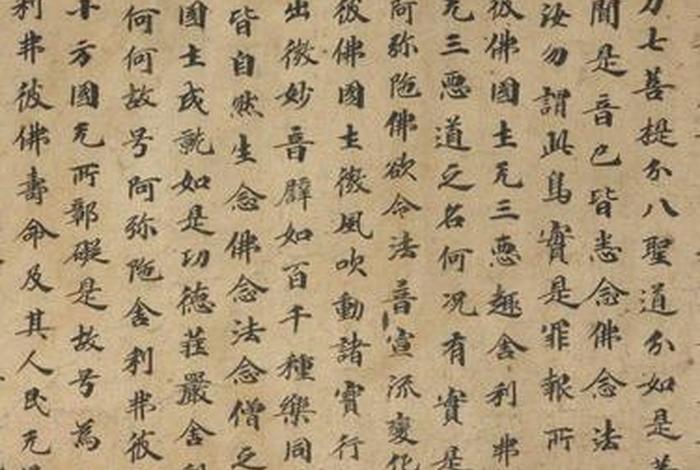 力七菩提分八聖道分如是
聞是音已皆悉念佛念法
汝勿謂此鳥實是罪報所
彼佛國土无三惡趣舍利弗
无三惡道之名何況有實是
阿弥陁佛欲令法音宣流變化
彼佛國土微風吹動諸寶行
出微妙音譬如百千種樂同
皆自然生念佛念法念僧之
國土成就如是功德莊嚴舍
何何故号阿弥陁舍利弗彼
十方國无所鄣礙是故号為
利弗彼佛壽命及其人民无